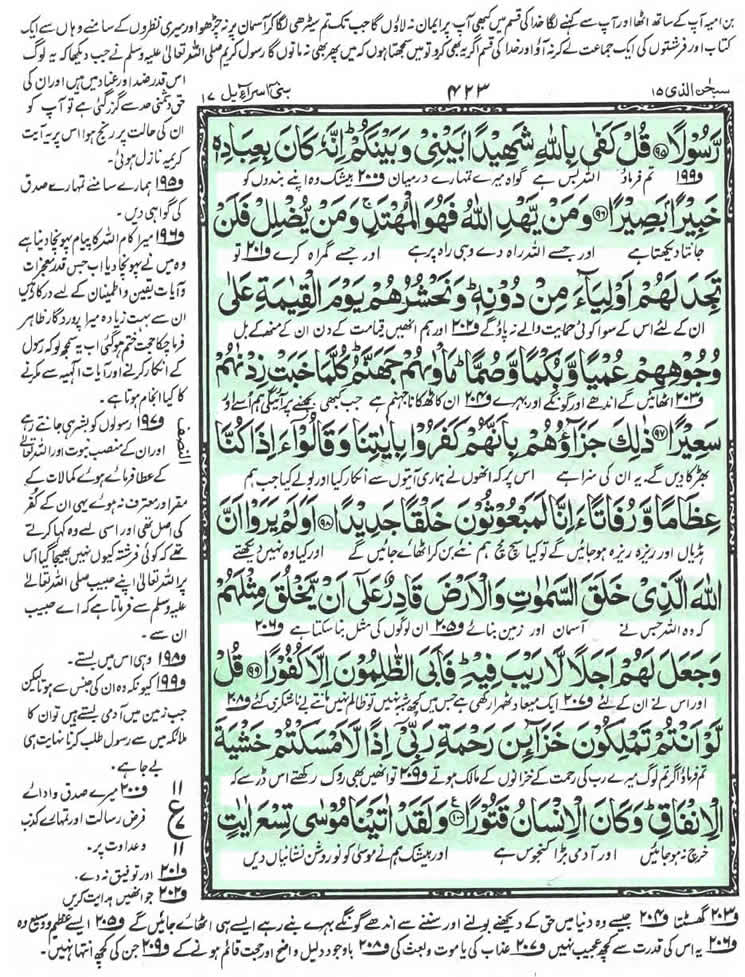 بن امیہ آپ کے ساتھ اٹھا اور آپ سے کہنے لگا خدا کی قسم میں کبھی آپ پر ایمان نہ لاؤں گا جب تک تم سیڑھی لگا کر آسمان پر نہ چڑھو اور میری نظروں کے سامنے وہاں سے ایک
کتاب اور فرشتوں کی ایک جماعت لے کر نہ آؤ اور خدا کی قسم اگر یہ بھی کرو تو میں سمجھتا ہوں کہ میں پھر بھی نہ مانوں گا رسول کریم صلی اللہ تعالیٰ علیہ وسلم نے جب دیکھا کہ یہ لوگ
سبحٰن الذی ۱۵
۴۲۳
بنی اسرآءیل ۱۷
رَّسُوْلًا ﴿۹۵﴾ قُلْ كَفٰى بِاللّٰهِ شَهِیْدًۢا بَیْنِیْ وَ بَیْنَكُمْ ؕ اِنَّهٗ كَانَ بِعِبَادِهٖ
و۱۹۹ تم فرماؤ اللہ بس ہے گواہ میرے تمہارے درمیان و۲۰۰ بیشک وہ اپنے بندوں کو
خَبِیْرًۢا بَصِیْرًا ﴿۹۶﴾ وَ مَنْ یَّهْدِ اللّٰهُ فَهُوَ الْمُهْتَدِ ۚ وَ مَنْ یُّضْلِلْ فَلَنْ
جانتا دیکھتا ہے اور جسے اللہ راہ دے وہی راہ پر ہے اور جسے گمراہ کرے و۲۰۱ تو
تَجِدَ لَهُمْ اَوْلِیَآءَ مِنْ دُوْنِهٖ ؕ وَ نَحْشُرُهُمْ یَوْمَ الْقِیٰمَةِ عَلٰى
ان کے لئے اس کے سوا کوئی حمایت والے نہ پاؤ گے و۲۰۲ اور ہم انھیں قیامت کے دن ان کے منھ کے بل
وُجُوْهِهِمْ عُمْیًا وَّ بُكْمًا وَّ صُمًّا ؕ مَاْوٰىهُمْ جَهَنَّمُ ؕ كُلَّمَا خَبَتْ زِدْنٰهُمْ
و۲۰۳ اٹھائیں گے اندھے اور گونگے اور بہرے و۲۰۴ ان کا ٹھکانا جہنم ہے جب کبھی بجھنے پر آئیگی ہم اسے اور
سَعِیْرًا ﴿۹۷﴾ ذٰلِكَ جَزَآؤُهُمْ بِاَنَّهُمْ كَفَرُوْا بِاٰیٰتِنَا وَ قَالُوْۤا ءَاِذَا كُنَّا
بھڑکا دیں گے، یہ ان کی سزا ہے اس پر کہ انھوں نے ہماری آیتوں سے انکار کیا اور بولے کیا جب ہم
عِظَامًا وَّ رُفَاتًا ءَاِنَّا لَمَبْعُوْثُوْنَ خَلْقًا جَدِیْدًا ﴿۹۸﴾ اَوَ لَمْ یَرَوْا اَنَّ
ہڈیاں اور ریزہ ریزہ ہو جائیں گے تو کیا سچ مچ ہم نئے بن کر اٹھائے جائیں گے اور کیا وہ نہیں دیکھتے
اللّٰهَ الَّذِیْ خَلَقَ السَّمٰوٰتِ وَ الْاَرْضَ قَادِرٌ عَلٰۤى اَنْ یَّخْلُقَ مِثْلَهُمْ
کہ وہ اللہ جس نے آسمان اور زمین بنائے و۲۰۵ ان لوگوں کی مثل بنا سکتا ہے و۲۰۶
وَ جَعَلَ لَهُمْ اَجَلًا لَّا رَیْبَ فِیْهِ ؕ فَاَبَى الظّٰلِمُوْنَ اِلَّا كُفُوْرًا ﴿۹۹﴾ قُلْ
اور اس نے ان کے لئے و۲۰۷ ایک میعاد ٹھہرا رکھی ہے جس میں کچھ شبہ نہیں تو ظالم نہیں مانتے بے ناشکری کئے و۲۰۸
لَّوْ اَنْتُمْ تَمْلِكُوْنَ خَزَآىٕنَ رَحْمَةِ رَبِّیْۤ اِذًا لَّاَمْسَكْتُمْ خَشْیَةَ
تم فرماؤ اگر تم لوگ میرے رب کی رحمت کے خزانوں کے مالک ہوتے و۲۰۹ تو انھیں بھی روک رکھتے اس ڈر سے کہ
الْاِنْفَاقِ ؕ وَ كَانَ الْاِنْسَانُ قَتُوْرًا ﴿۱۰۰﴾ وَ لَقَدْ اٰتَیْنَا مُوْسٰى تِسْعَ اٰیٰتٍۭ
خرچ نہ ہو جائیں اور آدمی بڑا کنجوس ہے اور بیشک ہم نے موسیٰ کو نو روشن نشانیاں دیں
اس قدر ضد اور عناد میں ہیں اور ان کی
حق دشمنی حد سے گزر گئی ہے تو آپ کو
ان کی حالت پر رنج ہوا اس پر یہ آیت
کریمہ نازل ہوئی۔
و۱۹۵ ہمارے سامنے تمہارے صدق
کی گواہی دیں۔
و۱۹۶ میرا کام اللہ کا پیام پہونچا دینا ہے
وہ میں نے پہونچا دیا اب جس قدر معجزات
و آیات یقین و اطمینان کے لیے درکار ہیں
ان سے بہت زیادہ میرا پروردگار ظاہر
فرما چکا حجت ختم ہو گئی اب یہ سمجھ لو کہ رسول
کے انکار کرنے اور آیات الٰہیہ سے مکرنے
کا کیا انجام ہوتا ہے۔
و۱۹۷ رسولوں کو بشر ہی جانتے رہے
اور ان کے منصب نبوت اور اللہ تعالیٰ
کے عطا فرمائے ہوئے کمالات کے
مقر اور معترف نہ ہوئے یہی ان کے کفر
کی اصل تھی اور اسی لیے وہ کہا کرتے
تھے کہ کوئی فرشتہ کیوں نہیں بھیجا گیا اس
پر اللہ تعالیٰ اپنے حبیب صلی اللہ تعالیٰ
علیہ وسلم سے فرماتا ہے کہ اے حبیب
ان سے۔
و۱۹۸ وہی اس میں بستے۔
و۱۹۹ کیونکہ وہ ان کی جنس سے ہوتا لیکن
جب زمین میں آدمی بستے ہیں تو ان کا
ملائکہ میں سے رسول طلب کرنا نہایت ہی
بے جا ہے۔
و۲۰۰ میرے صدق و ادائے
فرض رسالت اور تمہارے کذب
و عداوت پر۔
و۲۰۱ اور توفیق نہ دے۔
و۲۰۲ جو انھیں ہدایت کریں
النصف
۱۱
ع
۷
۱۱
و۲۰۳ گھسٹتا و۲۰۴ جیسے وہ دنیا میں حق کے دیکھنے بولنے اور سننے سے اندھے گونگے بہرے بنے رہے ایسے ہی اٹھائے جائیں گے و۲۰۵ ایسے عظیم و وسیع وہ
و۲۰۶ یہ اس کی قدرت سے کچھ عجیب نہیں و۲۰۷ عذاب کی یا موت و بعث کی و۲۰۸ باوجود دلیل واضح اور حجت قائم ہونے کے و۲۰۹ جن کی کچھ انتہا نہیں۔